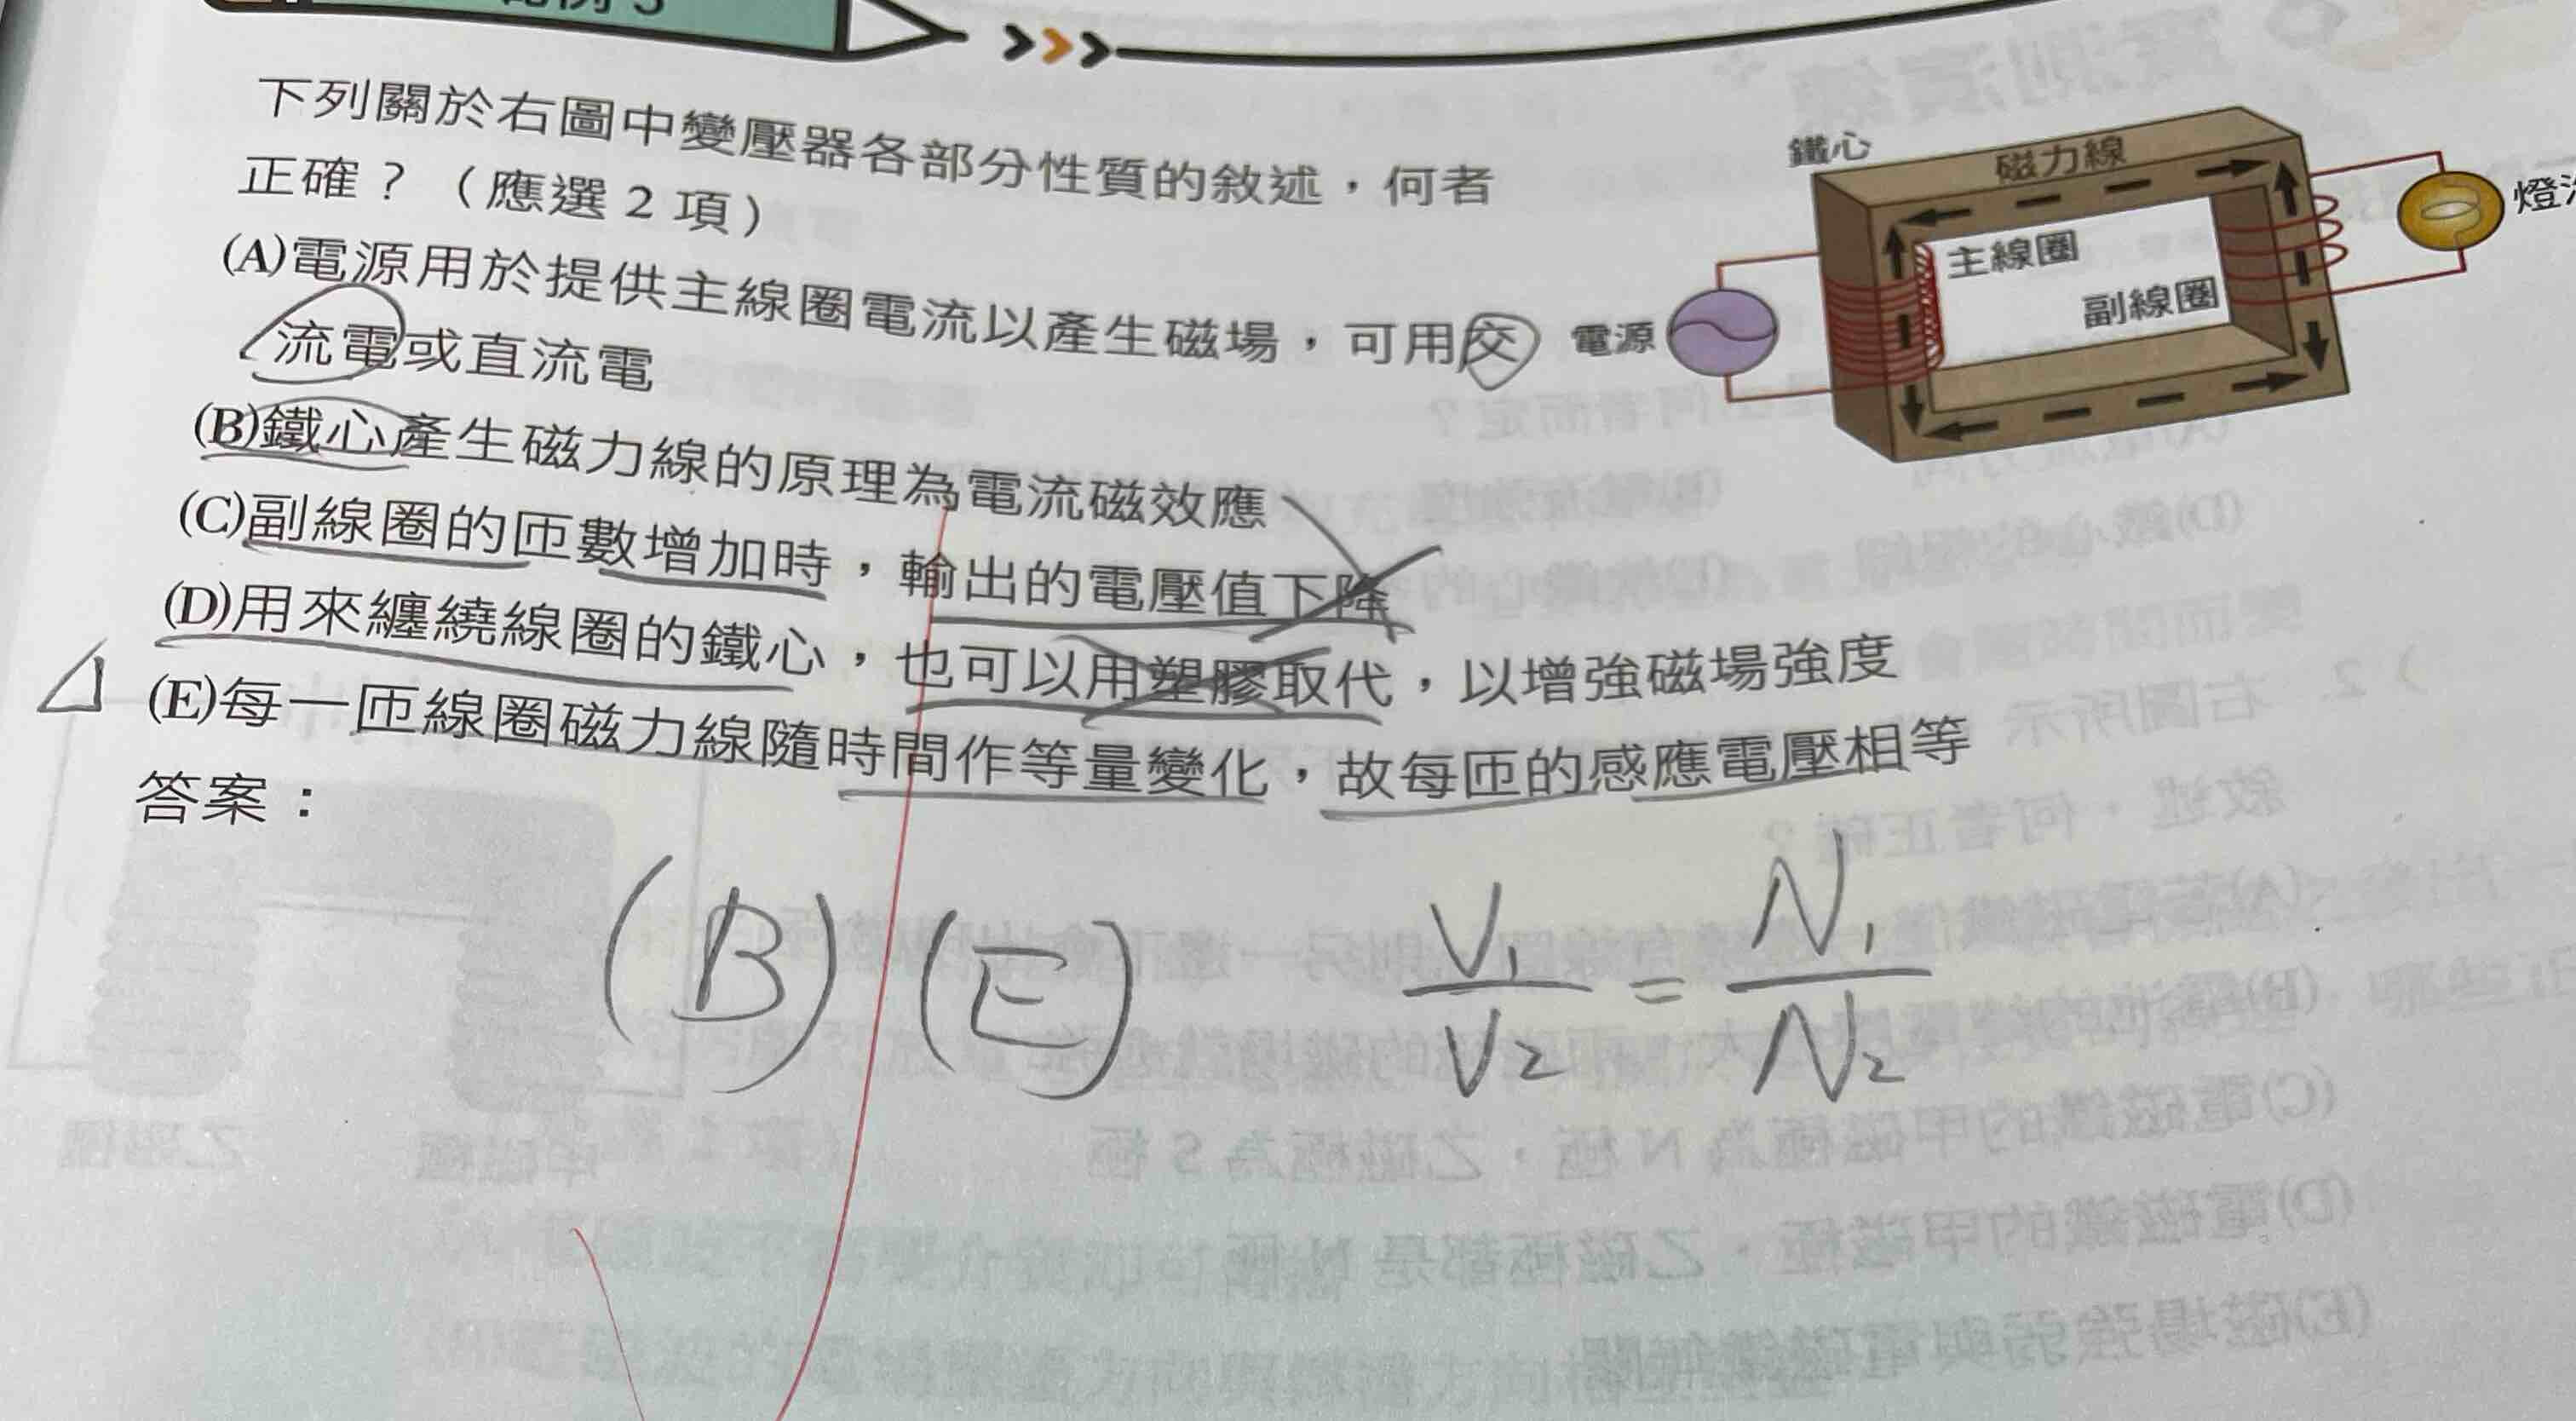 下列關於右圖中變壓器各部分性質的敘述,何者
正確?(應選 2 項)
(A)電源用於提供主線圈電流以產生磁場,可用交
流電或直流電
(B)鐵心產生磁力線的原理為電流磁效應
(C)副線圈的匝數增加時,輸出的電壓值下降
(D)用來纏繞線圈的鐵心,也可以用塑膠取代,以增強磁場強度
(E)每一匝線圈磁力線隨時間作等量變化,故每匝的感應電壓相等
答案:
鐵心
磁力線
主線圈
副線圈
電源
燈
(B) (E)
V1/V2 = N1/N2